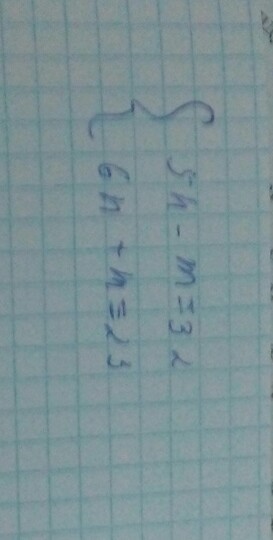 5n - m = 32
6n + n = 23